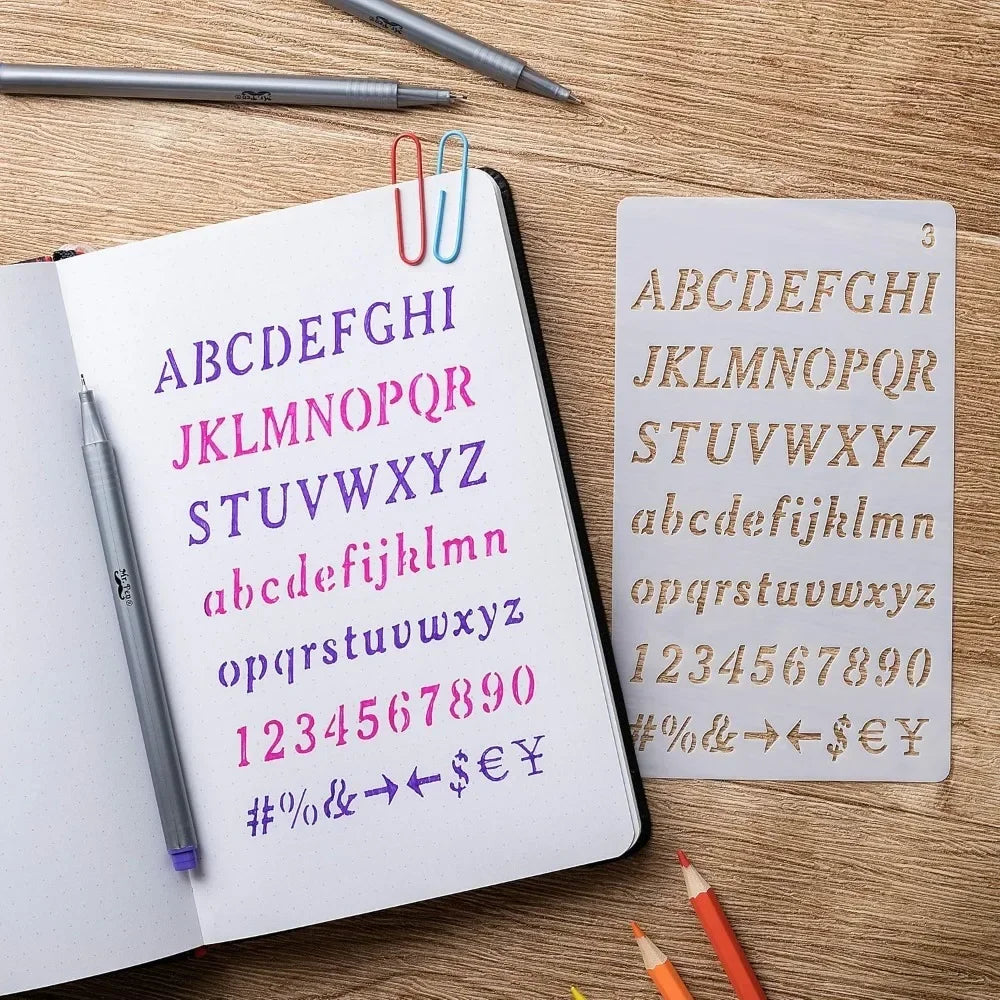 Mr. Pen
Mr. Pen
ABCDEFGHI
JKLMNOPQR
STUVWXYZ
abcdefijklmn
opqrstuvwxyz
1234567890
#%&→←$€¥
Mr. Pen®
3
ABCDEFGHI
JKLMNOPQR
STUVWXYZ
abcdefijklmn
opqrstuvwxyz
1234567890
#%&→←$€¥